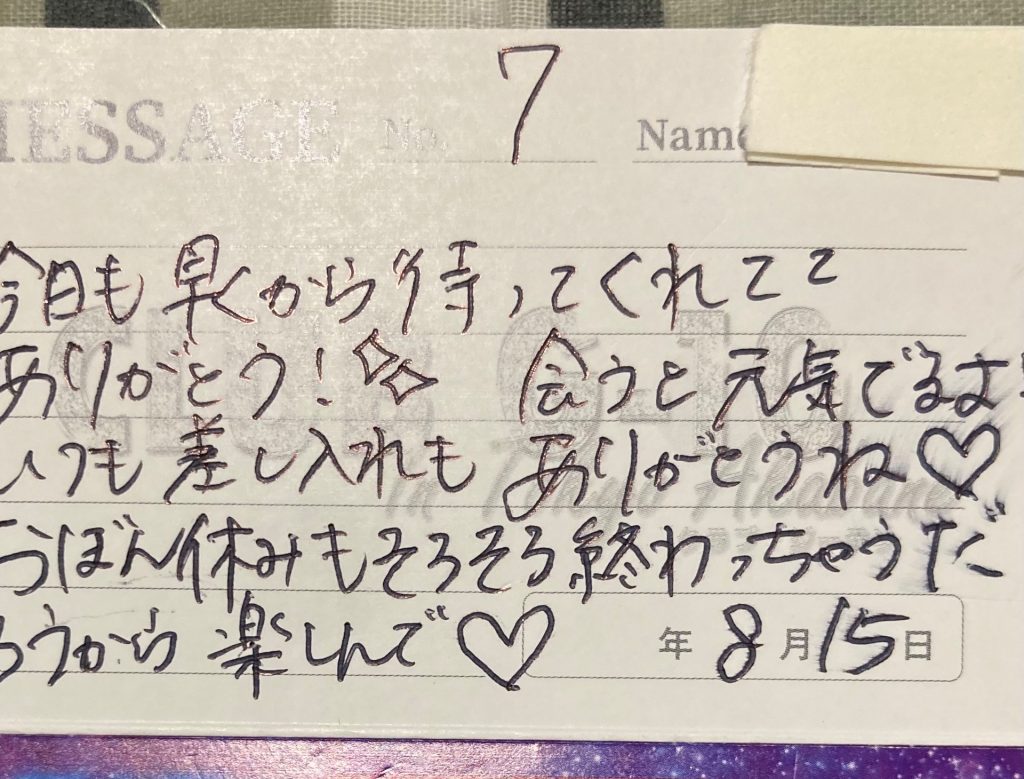 MESSAGE No. 7 Name
今日も早くから待ってくれてて
ありがとう！ 会うと元気でるよ！
いつも差し入れもありがとうね♡
ぼん休みもそろそろ終わっちゃうだ
ろうから楽しんで♡ 年 8月15日